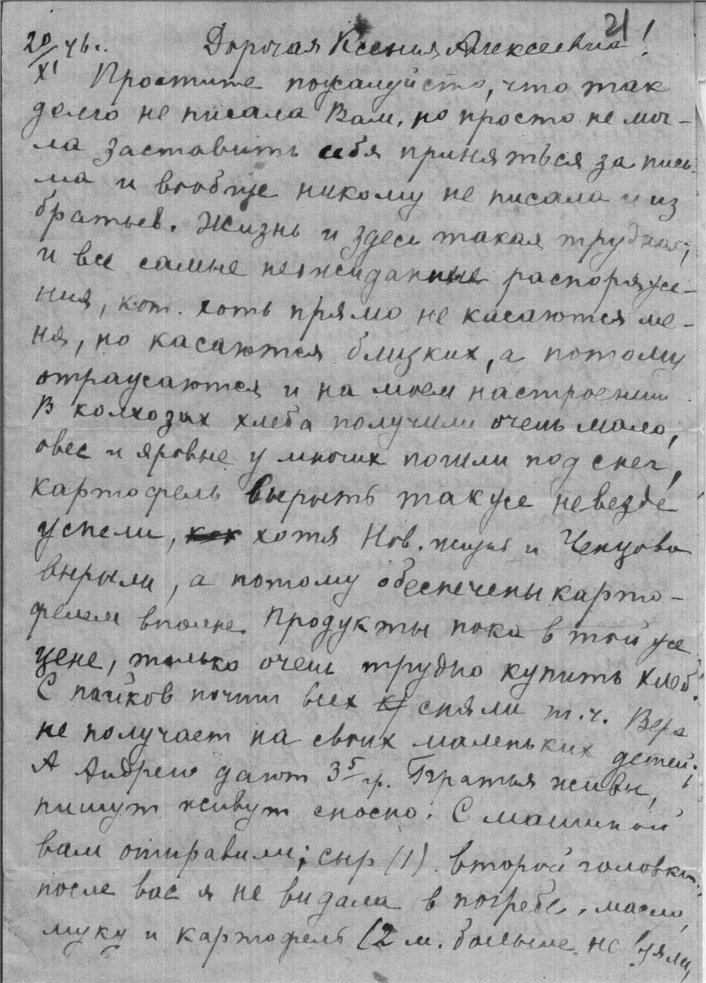 21
20/XI 46 г. Дорогая Ксения Алексеевна!
Простите пожалуйста, что так
долго не писала Вам, но просто не мог-
ла заставить себя приняться за пись-
ма и вообще никому не писала и из
братьев. Жизнь и здесь такая трудная,
и все самые неожиданные распоряже-
ния, кот. хоть прямо не касаются ме-
ня, но касаются близких, а потому
отражаются и на моем настроении
В колхозах хлеба получили очень мало,
овес и яровые у многих пошли под снег,
картофель вырыть также не везде
успели, хотя Нов. жизнь и Чепцова
вырыли, а потому обеспечены карто-
фелем вполне. Продукты пока в той же
цене, только очень трудно купить хлеб.
С пайков почти всех сняли т.ч. Вера
не получает на своих маленьких детей;
А Андрею дают Братья живы,
пишут живут сносно. С машиной
вам отправили; сыр (1) второй головки
после вас я не видала в погребе, масло,
муку и картофель (2 м. больше не взяли,